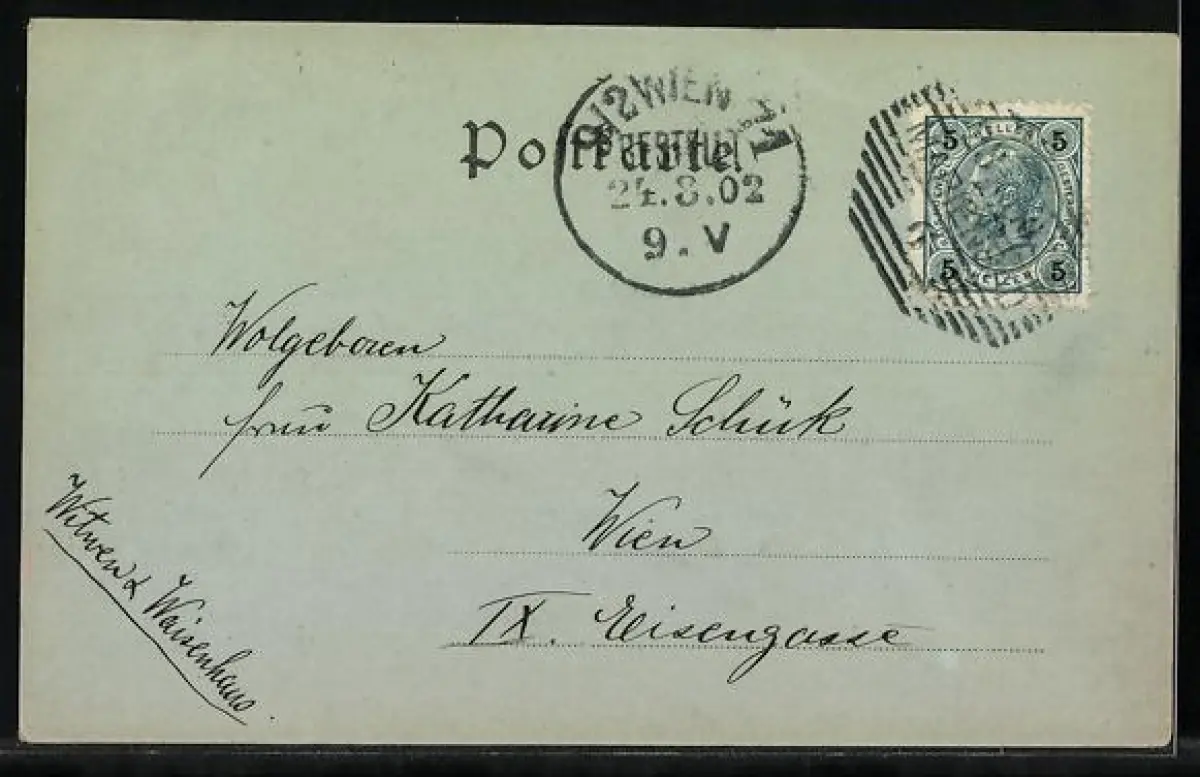 Postkarte
9/2 WIEN 71
BESTELLT
24.8.02
9. V
5 HELLER 5
5 HELLER 5
Wolgeboren
frau Katharine Schük
Wien
IX. Eisengasse
Witwen & Waisenhaus.